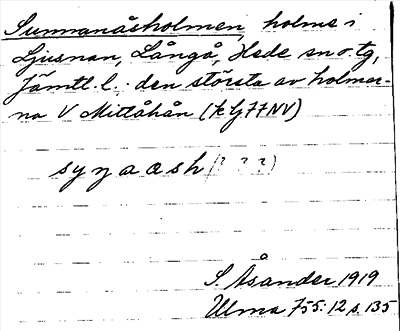 Sunnanåsholmen, holme i
Ljusnan, Långå, Hede sn o. tg,
Jämtl. l.: den största av holmar-
na V Mittåhån (k G77NV)
synaash (? ? ?)
S. Åsander 1919
Ulma 755:12 s. 135